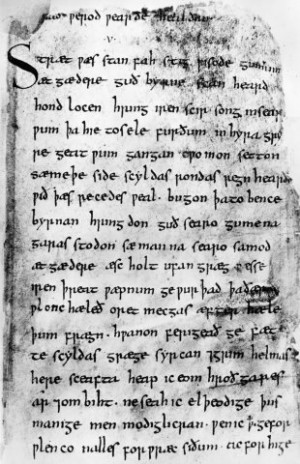 ƿrað ƿerod ƿearde healdan
.v.
Stræt ƿæs stan fah stig ƿisode gumum
æt gædere guð byrne scan heard
hond locen hring iren scir song in sear
ƿum þa hie to sele furðum in hyra gry
re geat ƿum gangan cƿomon setton
sæmeþe side scyldas rondas regn hearde
ƿið þæs recedes ƿeal · bugon þa to bence
byrnan hring don guð searo gumena
garas stodon sæ manna searo samod
æt gædere æsc holt ufan græg ƿæs se
iren þreat ƿæpnum ge ƿurþad þa ðær
ƿlonc hæleð oret mecgas æfter hæle
þum frægn · hƿanon ferigeað ge fæt
te scyldas græge syrcan ⁊ grim helmas
here sceafta heap ic eom hroð gares
ar ⁊ om biht · ne seah ic elþeodige þus
manige men modiglicran · ƿen ic ꝥ ge for
ƿlenco nalles for ƿræc siðum · ac for hige